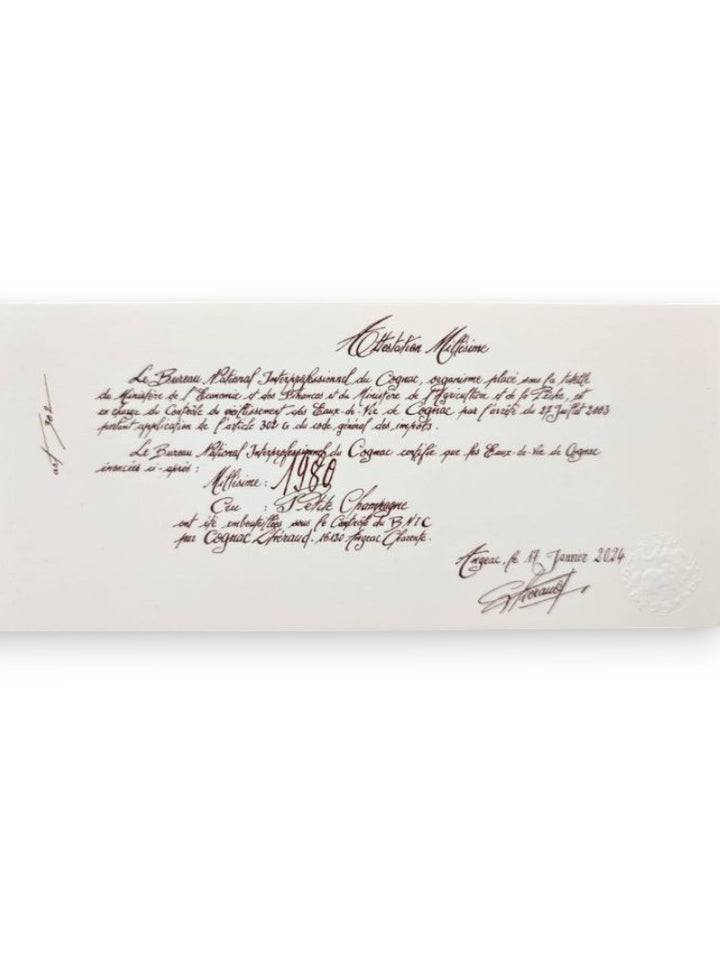 Attestation Millésime
Le Bureau National Interprofessionnel du Cognac, organisme placé sous la tutelle
du Ministère de l'Economie et des Finances et du Ministère de l'Agriculture et de la Pêche, est
en charge du Contrôle du vieillissement des Eaux-de-Vie de Cognac par l'arrêté du 27 Juillet 2003
portant application de l'article 302 G du code général des impôts.
Le Bureau National Interprofessionnel du Cognac certifie que les Eaux-de-vie de Cognac
énoncées ci-après :
Millésime : 1980
Cru : Petite Champagne
ont été embouteillées sous le Contrôle du BNIC
par Cognac Lhéraud. 16120 Angeac Charente.
Angeac, le 17 Janvier 2024